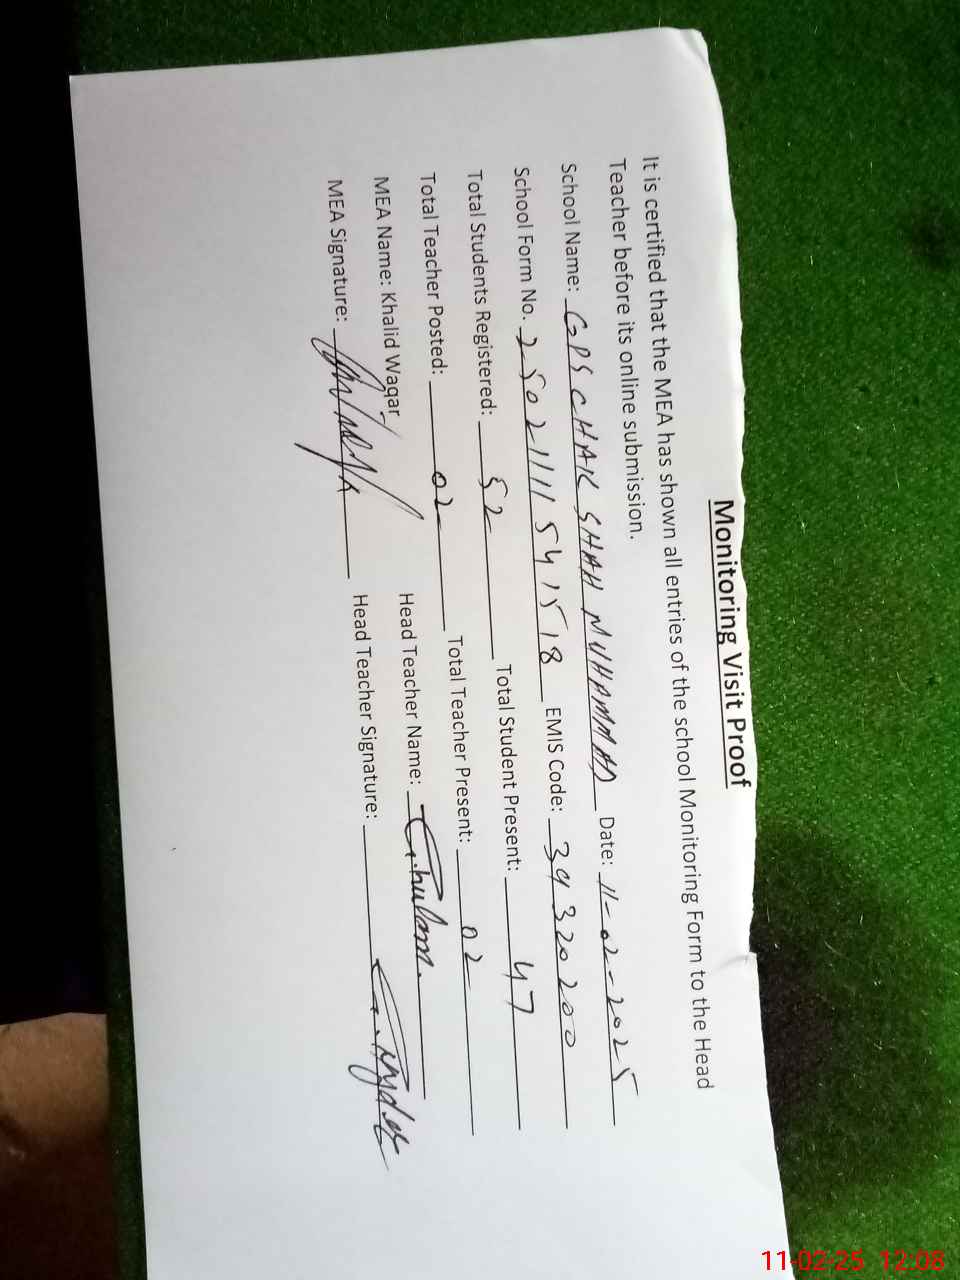 Monitoring Visit Proof
It is certified that the MEA has shown all entries of the school Monitoring Form to the Head
Teacher before its online submission.
School Name: GPS CHAK SHAH MUHAMMAD Date: 11-02-2025
School Form No. 25021111541518 EMIS Code: 39320200
Total Students Registered: 52 Total Student Present: 47
Total Teacher Posted: 02 Total Teacher Present: 02
MEA Name: Khalid Waqar Head Teacher Name: Ghulam
MEA Signature: Head Teacher Signature:
11-02-25 12:08